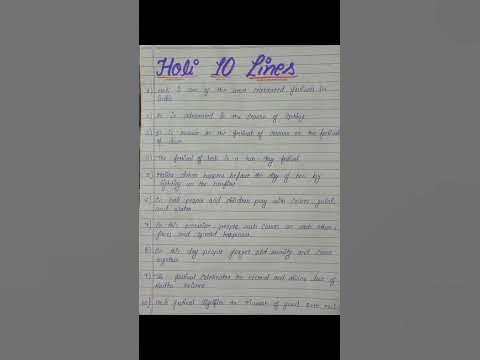 Holi 10 Lines
1) Holi is one of the most celebrated festivals in
India
2) It is celebrated in the season of spring
3) It is known as the festival of colours or the festival
of love
4) The festival of Holi is a two day festival
5) Holika dahan happens before the day of Holi by
lighting up the bonfire
6) On Holi people and children play with colours, gulal
and water
7) On this occasion, people rub colours on each other's
faces and spread happiness
8) On this day people forget old enmity and come
together
9) The festival celebrates the eternal and divine love of
Radha Krishna
10) Holi festival signifies the triumph of good over evil